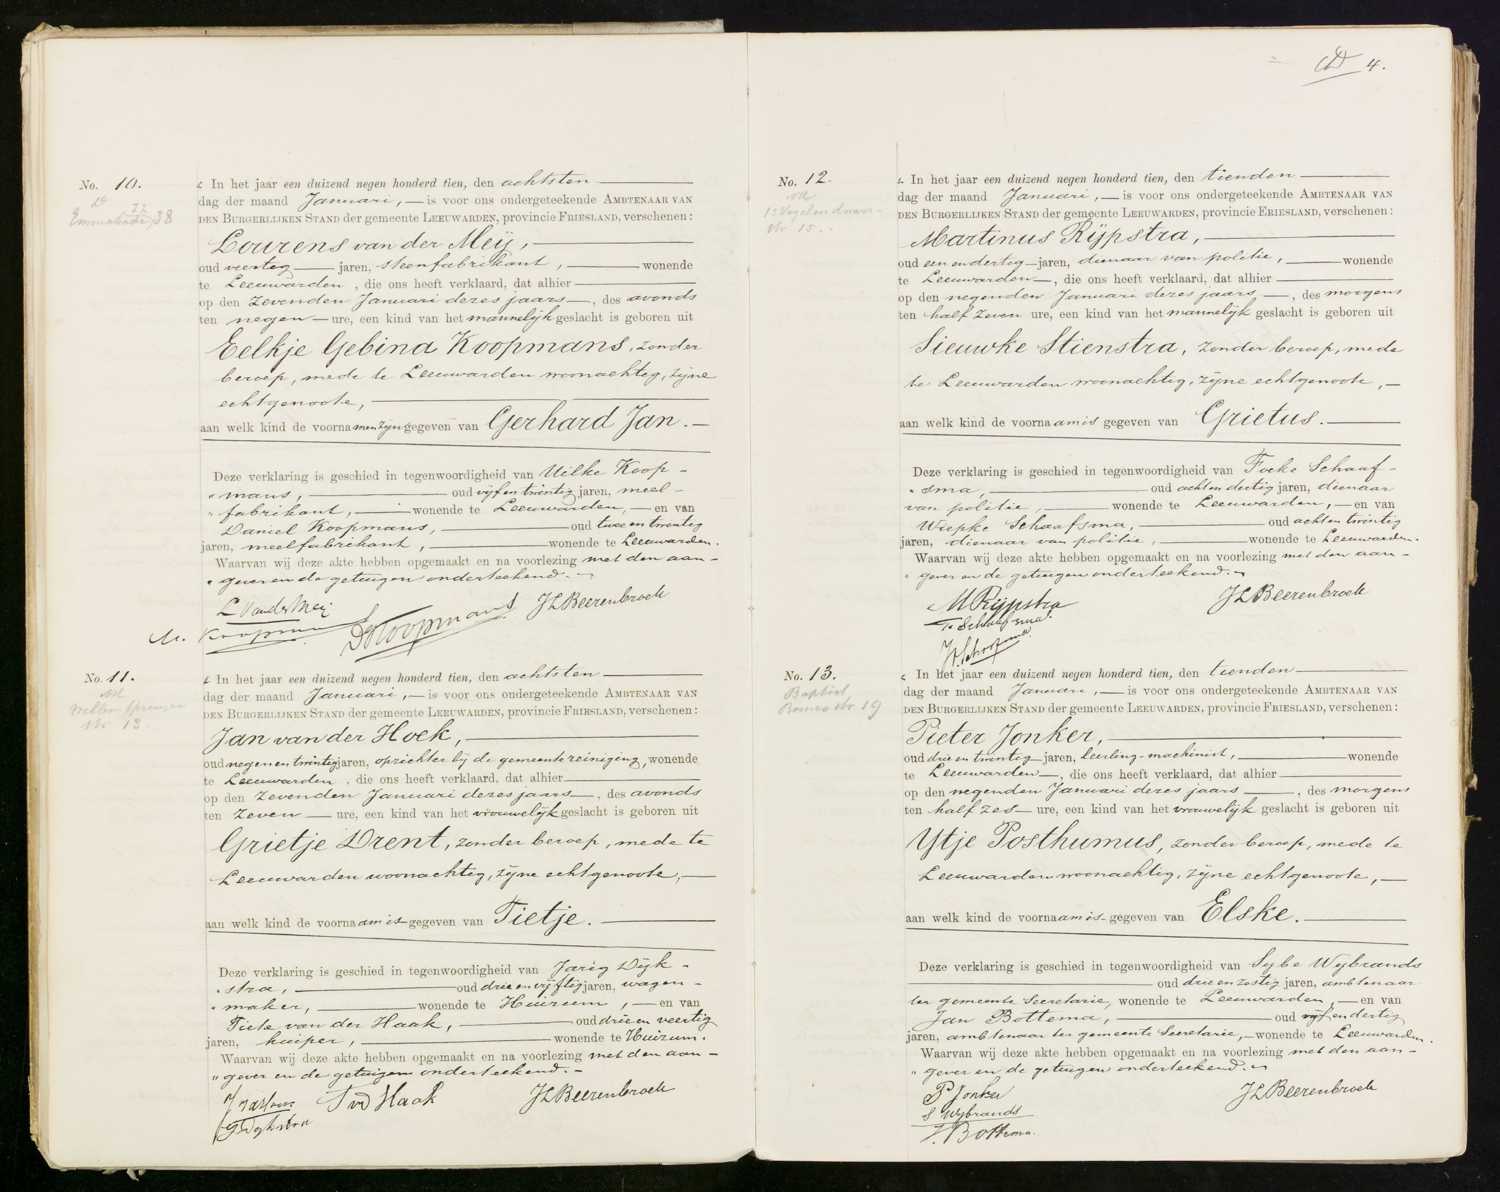 No. 10.
In het jaar een duizend negen honderd tien, den achtsten
dag der maand Januari, is voor ons ondergeteekende AMBTENAAR VAN
DEN BURGERLIJKEN STAND der gemeente LEEUWARDEN, provincie FRIESLAND, verschenen:
Lourens van der Meij,
oud veertig jaren, steenfabrikant, wonende
te Leeuwarden, die ons heeft verklaard, dat alhier
op den zevenden Januari dezes jaars, des avonds
ten negen ure, een kind van het mannelijk geslacht is geboren uit
Eelkje Gebina Koopmans, zonder
beroep, mede te Leeuwarden woonachtig, zijne
echtgenoote,
aan welk kind de voornamen zijn gegeven van Gerhard Jan.
Deze verklaring is geschied in tegenwoordigheid van Uilke Koop-
mans, oud vijf en twintig jaren, meel-
fabrikant, wonende te Leeuwarden, en van
Daniel Koopmans, oud twee en twintig
jaren, meelfabrikant, wonende te Leeuwarden.
Waarvan wij deze akte hebben opgemaakt en na voorlezing met den aan-
gever en de getuigen onderteekend.
L van der Meij
Koopmans
D Koopmans
JLBeerenbroek
No. 11.
Nr 13.
In het jaar een duizend negen honderd tien, den achtsten
dag der maand Januari, is voor ons ondergeteekende AMBTENAAR VAN
DEN BURGERLIJKEN STAND der gemeente LEEUWARDEN, provincie FRIESLAND, verschenen:
Jan van der Hoek,
oud negen en twintig jaren, opzichter bij de gemeentereiniging, wonende
te Leeuwarden, die ons heeft verklaard, dat alhier
op den zevenden Januari dezes jaars, des avonds
ten zeven ure, een kind van het vrouwelijk geslacht is geboren uit
Grietje Drent, zonder beroep, mede te
Leeuwarden woonachtig, zijne echtgenoote,
aan welk kind de voornaam is gegeven van Tietje.
Deze verklaring is geschied in tegenwoordigheid van Jarig Dijk-
stra, oud drie en vijftig jaren, wagen-
maker, wonende te Huizum, en van
Tiete van der Haak, oud drie en veertig
jaren, kuiper, wonende te Huizum.
Waarvan wij deze akte hebben opgemaakt en na voorlezing met den aan-
gever en de getuigen onderteekend.
T vd Haak
JLBeerenbroek
J Dijkstra
4.
No. 12.
Nr 15.
In het jaar een duizend negen honderd tien, den tienden
dag der maand Januari, is voor ons ondergeteekende AMBTENAAR VAN
DEN BURGERLIJKEN STAND der gemeente LEEUWARDEN, provincie FRIESLAND, verschenen:
Martinus Rijpstra,
oud een en dertig jaren, dienaar van politie, wonende
te Leeuwarden, die ons heeft verklaard, dat alhier
op den negenden Januari dezes jaars, des morgens
ten half zeven ure, een kind van het mannelijk geslacht is geboren uit
Sieuwke Stienstra, zonder beroep, mede
te Leeuwarden woonachtig, zijne echtgenoote,
aan welk kind de voornaam is gegeven van Grietus.
Deze verklaring is geschied in tegenwoordigheid van Focke Schaaf-
sma, oud acht en dertig jaren, dienaar
van politie, wonende te Leeuwarden, en van
Wiepke Schaafsma, oud acht en twintig
jaren, dienaar van politie, wonende te Leeuwarden.
Waarvan wij deze akte hebben opgemaakt en na voorlezing met den aan-
gever en de getuigen onderteekend.
M Rijpstra
F. Schaafsma.
JLBeerenbroek
No. 13.
Nr 19
In het jaar een duizend negen honderd tien, den tienden
dag der maand Januari, is voor ons ondergeteekende AMBTENAAR VAN
DEN BURGERLIJKEN STAND der gemeente LEEUWARDEN, provincie FRIESLAND, verschenen:
Pieter Jonker,
oud drie en twintig jaren, leerling-machinist, wonende
te Leeuwarden, die ons heeft verklaard, dat alhier
op den negenden Januari dezes jaars, des morgens
ten half zes ure, een kind van het vrouwelijk geslacht is geboren uit
Ytje Posthumus, zonder beroep, mede te
Leeuwarden woonachtig, zijne echtgenoote,
aan welk kind de voornaam is gegeven van Elske.
Deze verklaring is geschied in tegenwoordigheid van Sybe Wybrands
oud drie en zestig jaren, ambtenaar
ter gemeente Secretarie, wonende te Leeuwarden, en van
Jan Bottema, oud vijf en dertig
jaren, ambtenaar ter gemeente Secretarie, wonende te Leeuwarden.
Waarvan wij deze akte hebben opgemaakt en na voorlezing met den aan-
gever en de getuigen onderteekend.
P Jonker
S Wybrands
J. Bottema.
JLBeerenbroek